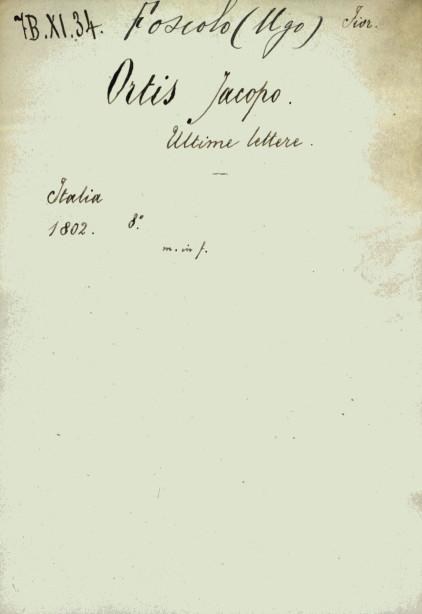 7B.XI.34. Foscolo (Ugo) Fior.
Ortis Jacopo.
Ultime lettere.
Italia
1802. 8.º
m. in f.